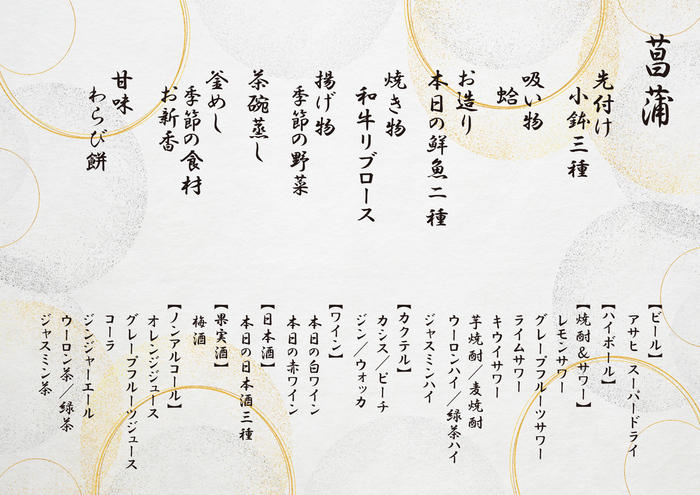 菖蒲
先付け
小鉢三種
吸い物
蛤
お造り
本日の鮮魚二種
焼き物
和牛リブロース
揚げ物
季節の野菜
茶碗蒸し
釜めし
季節の食材
お新香
甘味
わらび餅
【ビール】
アサヒ スーパードライ
【ハイボール】
【焼酎&サワー】
レモンサワー
グレープフルーツサワー
ライムサワー
キウイサワー
芋焼酎/麦焼酎
ウーロンハイ/緑茶ハイ
ジャスミンハイ
【カクテル】
カシス/ピーチ
ジン/ウォッカ
【ワイン】
本日の白ワイン
本日の赤ワイン
【日本酒】
本日の日本酒三種
【果実酒】
梅酒
【ノンアルコール】
オレンジジュース
グレープフルーツジュース
コーラ
ジンジャーエール
ウーロン茶/緑茶
ジャスミン茶